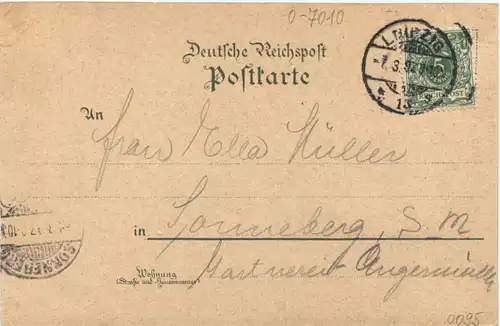 0-7010
LEIPZIG
13
5
REICHSPOST
Deutsche Reichspost
Postkarte
An
Frau Ella Müller
in Sonneberg, S. M
Wohnung
(Straße und Hausnummer)
SONNEBERG
0095